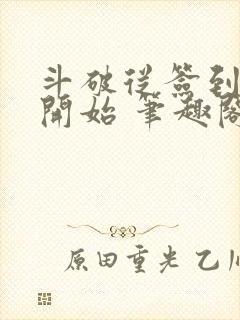 斗破從簽到
開始 筆趣閣
原田重光 乙川